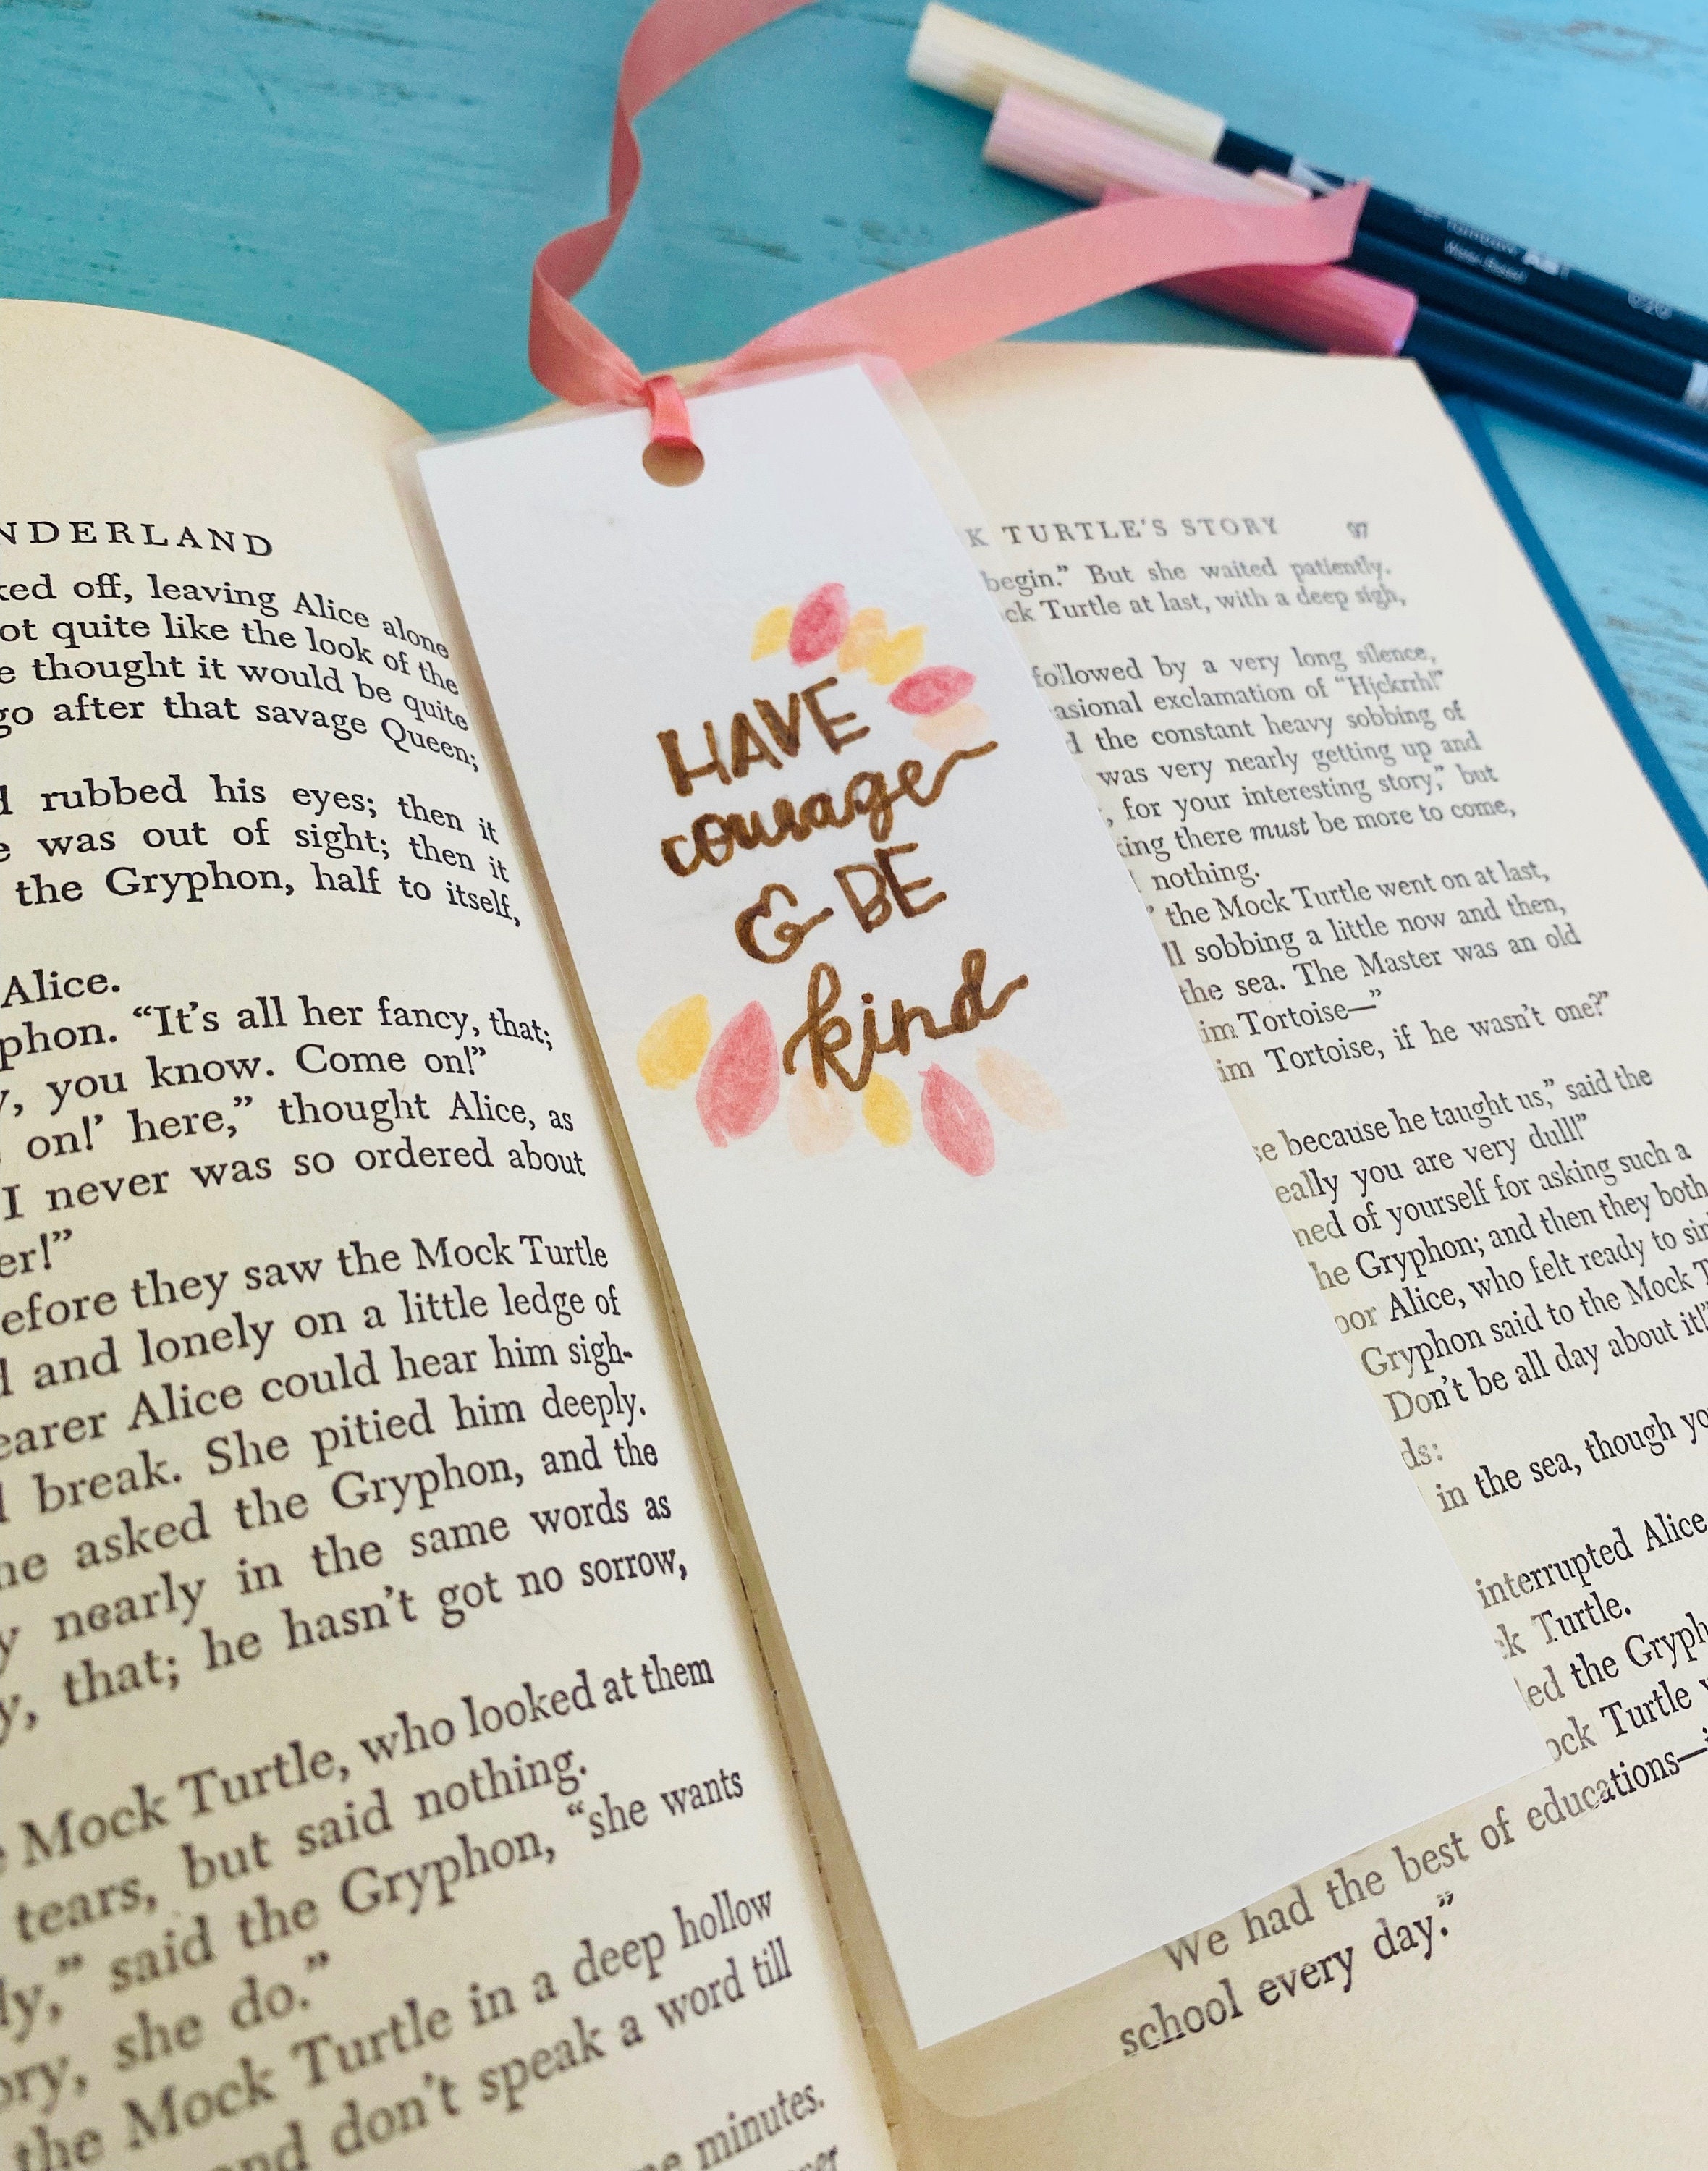 NDERLAND
ked off, leaving Alice alone
ot quite like the look of the
e thought it would be quite
go after that savage Queen;
d rubbed his eyes; then it
e was out of sight; then it
the Gryphon, half to itself,
Alice.
phon. “It’s all her fancy, that;
y, you know. Come on!”
on!’ here,” thought Alice, as
I never was so ordered about
er!”
efore they saw the Mock Turtle
d and lonely on a little ledge of
earer Alice could hear him sigh-
d break. She pitied him deeply.
he asked the Gryphon, and the
y nearly in the same words as
y, that; he hasn’t got no sorrow,
e Mock Turtle, who looked at them
tears, but said nothing.
ly,” said the Gryphon, “she wants
ory, she do.”
the Mock Turtle in a deep hollow
and don’t speak a word till
ne minutes.
HAVE
courage
& BE
kind
K TURTLE’S STORY 97
begin.” But she waited patiently.
ck Turtle at last, with a deep sigh,
followed by a very long silence,
asional exclamation of “Hjckrrh!”
d the constant heavy sobbing of
was very nearly getting up and
, for your interesting story,” but
king there must be more to come,
nothing.
” the Mock Turtle went on at last,
ll sobbing a little now and then,
the sea. The Master was an old
im Tortoise—”
im Tortoise, if he wasn’t one?”
se because he taught us,” said the
eally you are very dull!”
med of yourself for asking such a
he Gryphon; and then they both
oor Alice, who felt ready to sin
Gryphon said to the Mock T
Don’t be all day about it!”
ds:
in the sea, though yo
interrupted Alice
ck Turtle.
led the Gryph
ock Turtle
We had the best of educations—i
school every day.”